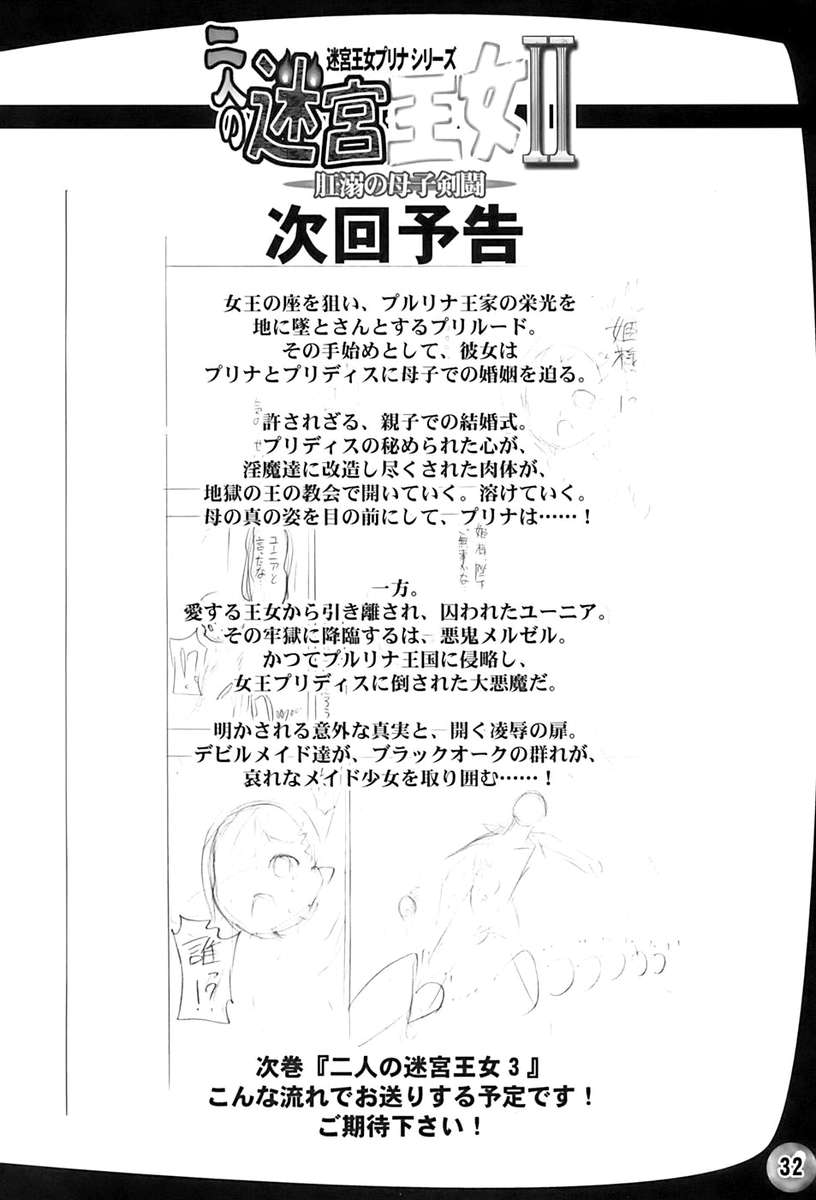 迷宮王女プリナシリーズ
二人の迷宮王女II
肛溺の母子剣闘
次回予告
女王の座を狙い、プルリナ王家の栄光を
地に墜とさんとするプリルード。
その手始めとして、彼女は
プリナとプリディスに母子での婚姻を迫る。
許されざる、親子での結婚式。
プリディスの秘められた心が、
淫魔達に改造し尽くされた肉体が、
地獄の王の教会で開いていく。溶けていく。
母の真の姿を目の前にして、プリナは……！
一方。
愛する王女から引き離され、囚われたユーニア。
その牢獄に降臨するは、悪鬼メルゼル。
かつてプルリナ王国に侵略し、
女王プリディスに倒された大悪魔だ。
明かされる意外な真実と、開く凌辱の扉。
デビルメイド達が、ブラックオークの群れが、
哀れなメイド少女を取り囲む……！
姫様!?
ユーニアと
言ったな
!?
誰!?
次巻『二人の迷宮王女３』
こんな流れでお送りする予定です！
ご期待下さい！
32